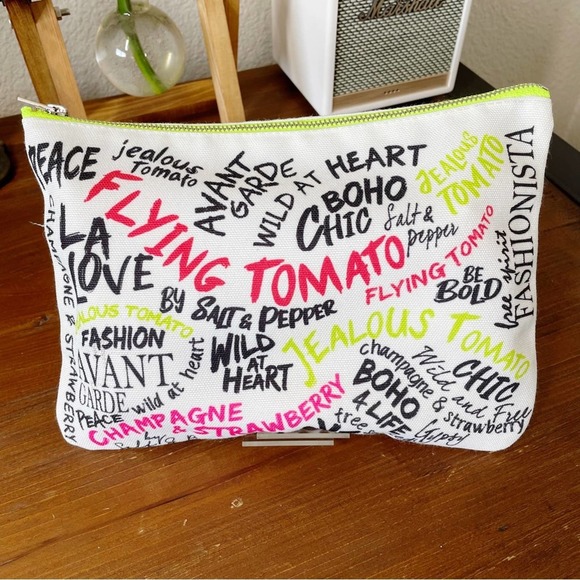 PEACE
jealous
Tomato
AVANT
GARDE
WILD AT HEART
BOHO
CHIC
Salt &
Pepper
JEALOUS
TOMATO
free spirit
FASHIONISTA
CHAMPAGNE & STRAWBERRY
LA
LOVE
FLYING TOMATO
BY SALT & PEPPER
FLYING TOMATO
BE
BOLD
JEALOUS TOMATO
FASHION
AVANT
GARDE
PEACE
wild at heart
WILD
AT
HEART
JEALOUS TOMATO
champagne &
strawberry
CHIC
Wild and Free
BOHO
4 LIFE
CHAMPAGNE
& STRAWBERRY
free
Gypsy